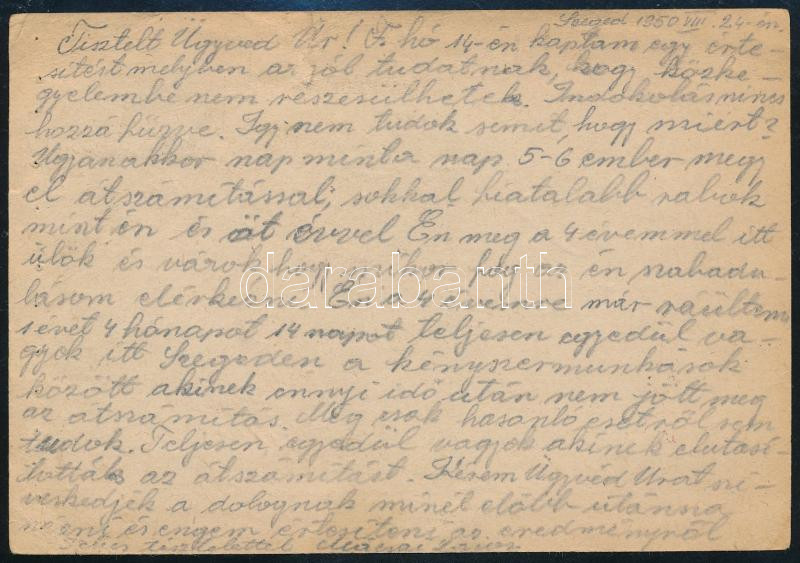 Szeged 1950 VIII. 24-én.
Tisztelt Ügyvéd Úr! F hó 14-én kaptam egy érte-
sitést melyben az jól tudatnak, hogy közke-
gyelembe nem részesülhetek. Indokolás nincs
hozzá füzve. Igy nem tudok semit, hogy miért?
Ugyanakkor nap mint a nap 5-6 ember megy
el átszámitással, sokkal fiatalabb rabok
mint én és öt évvel Én meg a 4 évemmel itt
ülök és várok hogy mikor fog az én szabadu-
lásom elérkezni. Én a 4 évemre már ráültem
1 évet 4 hónapot 14 napot teljesen egyedül va-
gyok itt Szegeden a kényszermunkások
között akinek ennyi idő után nem jött meg
az átszámitás. Még csak hasonló esetről sem
tudok. Teljesen egyedül vagyok akinek elutasi-
tották az átszámitást. Kérem Ügyvéd Urat szi-
veskedjék a dolognak minél előbb utánna
nézni és engem értesiteni az eredményről
Teljes tisztelettel
darabanth